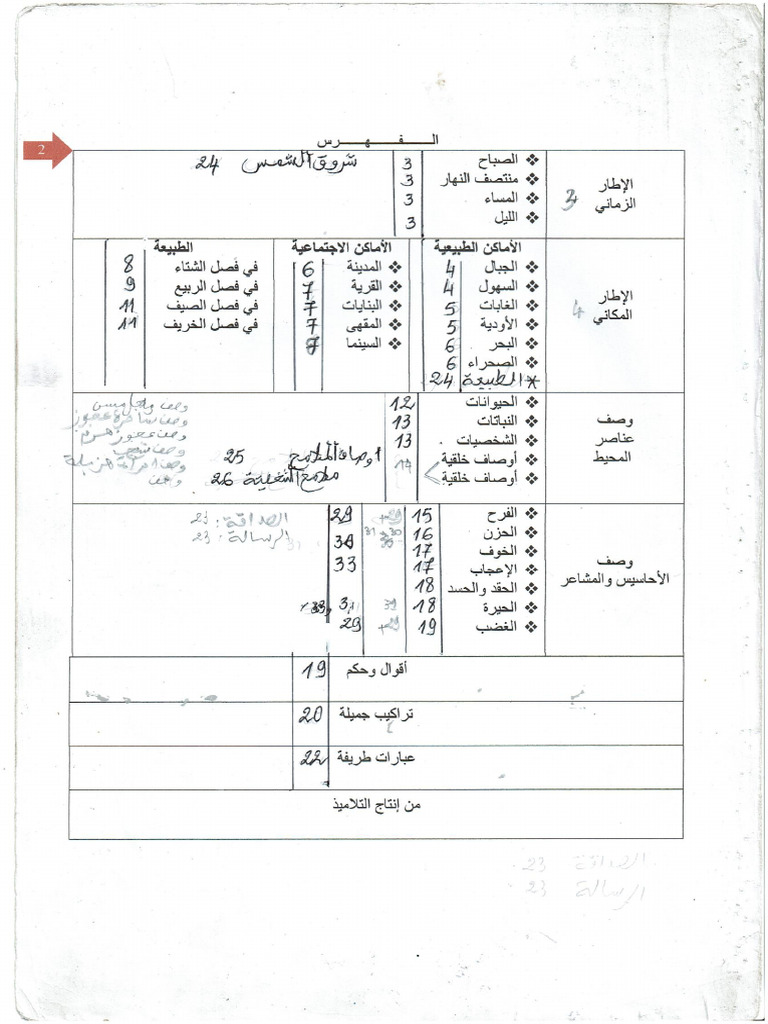 2
الـــفـــهـــرس
الإطار الزماني 3
الصباح 3 شروق الشمس 24
منتصف النهار 3
المساء 3
الليل 3
الإطار المكاني 4
الأماكن الطبيعية
الجبال 4
السهول 4
الغابات 5
الأودية 5
البحر 6
الصحراء 6
* الطبيعة 24
الأماكن الاجتماعية
المدينة 6
القرية 7
البنايات 7
المقهى 7
السينما 7
الطبيعة
في فصل الشتاء 8
في فصل الربيع 9
في فصل الصيف 11
في فصل الخريف 11
وصف عناصر المحيط
الحيوانات 12
النباتات 13
الشخصيات 13
أوصاف خلقية 14 اوصاف الملامح 25
أوصاف خلقية ملامح الشخصية 26
وصف ساحرة عجوز
وصف عجوز هرم
وصف امرأة هزيلة
وصف
وصف الأحاسيس والمشاعر
الفرح 15 29 الصداقة : 23
الحزن 16 الرسالة : 23
الخوف 17
الإعجاب 17 33
الحقد والحسد 18
الحيرة 18
الغضب 19 29
أقوال وحكم 19
تراكيب جميلة 20
عبارات طريفة 22
من إنتاج التلاميذ
الصداقة 23
الرسالة 23